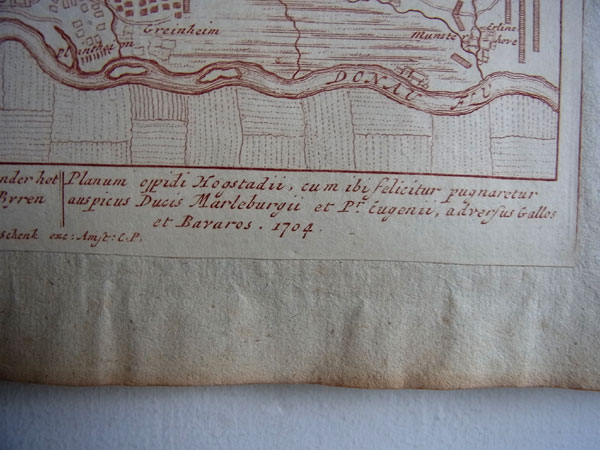 Greinheim
Munster
Plintheim
DONAU FLU
nder het
Byren
Planum oppidi Hogstadii, cum ibi felicitur pugnaretur
auspicus Ducis Marleburgii et Pr. Eugenii, adversus Gallos
et Bavaros. 1704.
schenk exc: Amst: C.P.